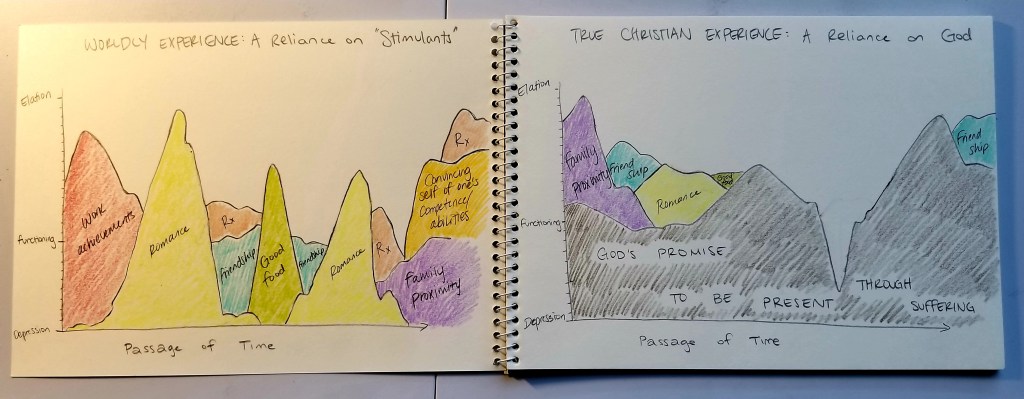 WORLDLY EXPERIENCE: A Reliance on "Stimulants"
Elation
Functioning
Depression
Work
achievements
Romance
Rx
Friendship
Good
food
Friendship
Romance
Rx
Rx
Convincing
self of one's
competence/
abilities
Family
Proximity
Passage of Time
TRUE CHRISTIAN EXPERIENCE: A Reliance on God
Elation
Functioning
Depression
Family
Proximity
Friend
ship
Romance
Good
food
Friend
ship
GOD'S PROMISE
TO BE PRESENT
THROUGH
SUFFERING
Passage of Time